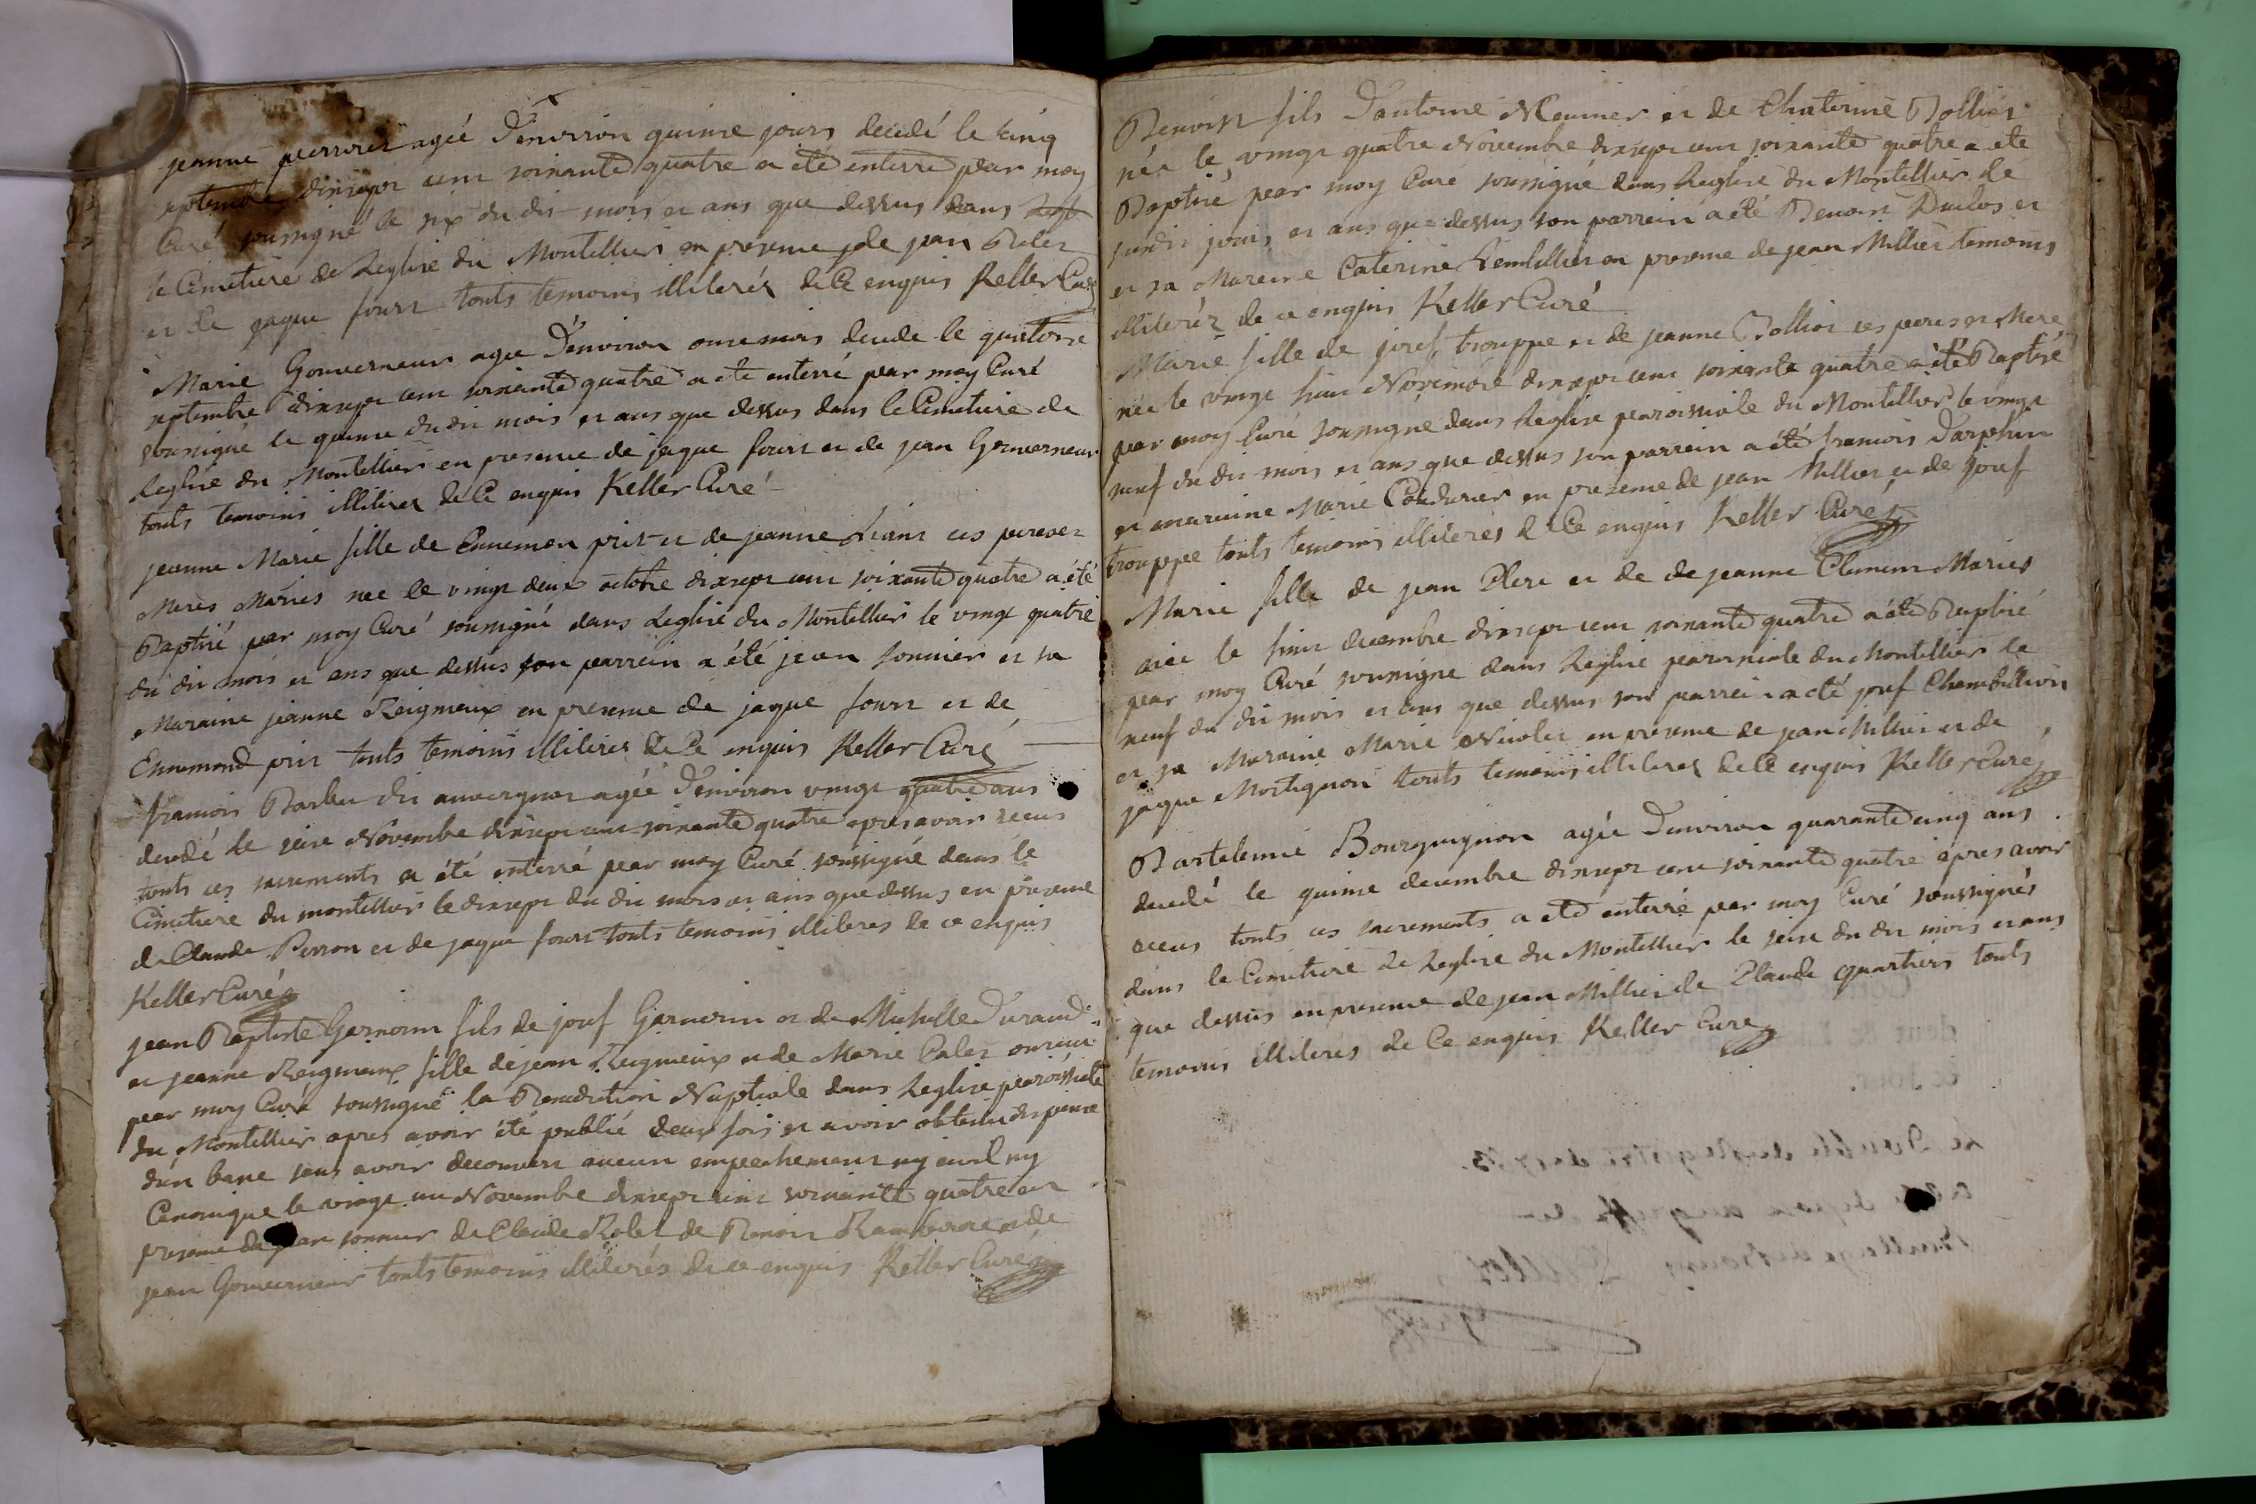 jeanne perrier ageé d'environ quinse jours decedé le sinq
septembre dixsept cent soixante quatre a eté enterré par moy
Curé soussigné le six du dit mois et ans que dessus dans
le Cimetiere de Leglise du Montellier en presence de jean Rolet
et de jaque fourt touts temoins illiterés de Ce enquis Keller Curé
Marie Gouverneur agée d'environ onse mois decedé le quatorse
septembre dixsept cent soixante quatre a eté enterré par moy Curé
soussigné le quinse du dit mois et ans que dessus dans le Cimetiere de
Leglise du Montellier en presence de jaque fourt et de jean Gouverneur
touts temoins illiteres de Ce enquis Keller Curé
jeanne Marie fille de Ennemon prit et de jeanne ces pere et
Meres Mariés née le vingt deux octobre dixsept cent soixante quatre a été
Baptisé par moy Curé soussigné dans Leglise du Montellier le vingt quatre
du dit mois et ans que dessus son parrein a été jean sonnier et sa
Maraine jeanne Reigneux en presence de jaque fourt et de
Ennemond prit touts temoins illiteres de Ce enquis Keller Curé
francois Barbu dit auvergnat ageé d'environ vingt quatre ans
decedé le seise Novembre dixsept cent soixante quatre apres avoir receus
touts ces sacrements a été enterré par moy Curé soussigné dans le
Cimetiere du montellier le dixsept du dit mois et ans que dessus en presence
de Claude Perron et de jaque fourt touts temoins illiteres de ce enquis
Keller Curé
jean Baptiste Garnerin fils de josef Garnerin et de Michelle Durand
et jeanne Reigneux fille de jean Reigneux et de Marie Calet ont recu
par moy Curé soussigné la Benediction Nuptiale dans Leglise paroissiale
du Montellier apres avoir été publié deux fois et avoir obtenu dispence
d'un banc sans avoir decouvert aucun empechement ny civil ny
Canonique le vingt un Novembre dixsept cent soixante quatre en
presence de jean sonnier de Claude Rolet de Benoit Rambaud et de
jean Gouverneur touts temoins illiterés de ce enquis Keller Curé
Benoist fils d'antoine Meunier et de Chaterine Bollier
née le vingt quatre Novembre dixsept cent soixante quatre a ete
Baptisé par moy Curé soussigné dans Leglise du Montellier le
susdit jours et ans que dessus son parrein a été Benoist Duclos et
et sa Mareine Caterine en presence de jean Millier temoins
illiteréz de ce enquis Keller Curé
Marie fille de josef trouppe et de jeanne Bollier ces peres et Mere
née le vingt huit Novembre dixsept cent soixante quatre a été Baptisé
par moy Curé soussigné dans Leglise paroissiale du Montellier le vingt
neuf du dit mois et ans que dessus son parrein a été francois Darphin
et maraine Marie Condurier en presence de jean Millier et de josef
trouppe touts temoins illiterés de Ce enquis Keller Curé
Marie fille de jean Clerc et de de jeanne Clement Mariés
née le huit decembre dixsept cent soixante quatre a été Baptisé
par moy Curé soussigné dans Leglise paroissiale du Montellier le
neuf du dit mois et ans que dessus son parrein a eté josef Chambullion
et sa Maraine Marie Nicolet en presence de jean Millier et de
jaque Mortignon touts temoins illiteres de Ce enquis Keller Curé
Bartelemie Bourguignon agée d'environ quarante cinq ans
decedé le quinse decembre dixsept cent soixante quatre apres avoir
receus touts ces sacrements a eté enterré par moy Curé soussignés
dans le Cimetiere de Leglise du Montellier le seise du dit mois et ans
que dessus en presence de jean Millier de Claude quartier touts
temoins illiteres de Ce enquis Keller Curé